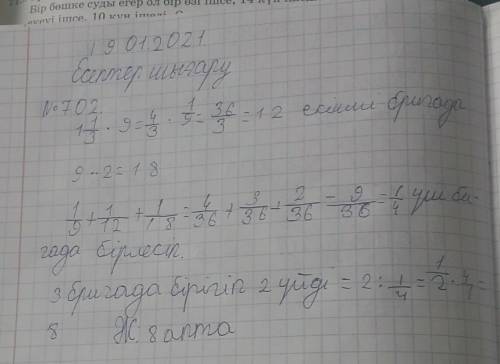 Бір бөшке суды егер ол бір өзі ішсе, 14 күн
екеуі ішсе, 10 күн ішеді.
19.01.2021
Есептер шығару
№702
1 1/3 · 9 = 4/3 · 1/9 = 36/3 = 12 екінші бригада
9 - 2 = 18
1/9 + 1/12 + 1/18 = 4/36 + 3/36 + 2/36 = 9/36 = 1/4 үш би-
гада бірлесіп.
3 бригада бірігіп 2 үйді = 2 : 1/4 = 1/2 · 4/1 =
8 Ж. 8 апта